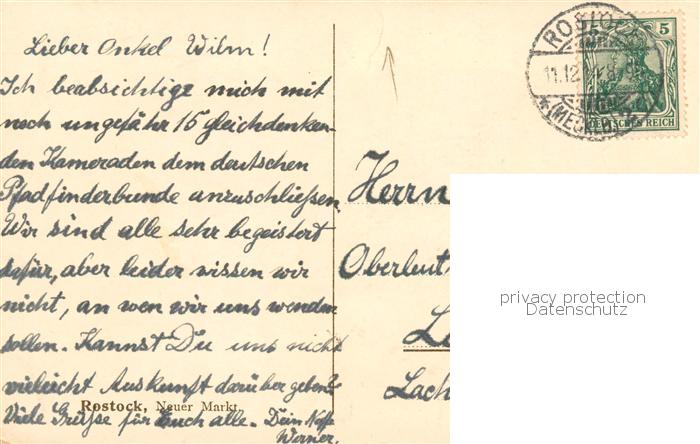 Lieber Onkel Wilm!
Ich beabsichtige mich mit
noch ungefähr 15 gleichdenken-
den Kameraden dem deutschen
Pfadfinderbunde anzuschließen.
Wir sind alle sehr begeistert
dafür, aber leider wissen wir
nicht, an wen wir uns wenden
sollen. Kannst Du uns nicht
vielleicht Auskunft darüber geben?
Viele Grüße für Euch alle. Dein Neffe
Werner.
Rostock, Neuer Markt
ROSTOCK
11.12.
(MECKLB)
5
DEUTSCHES REICH
Herrn
Oberleut
privacy protection
Datenschutz
Lach